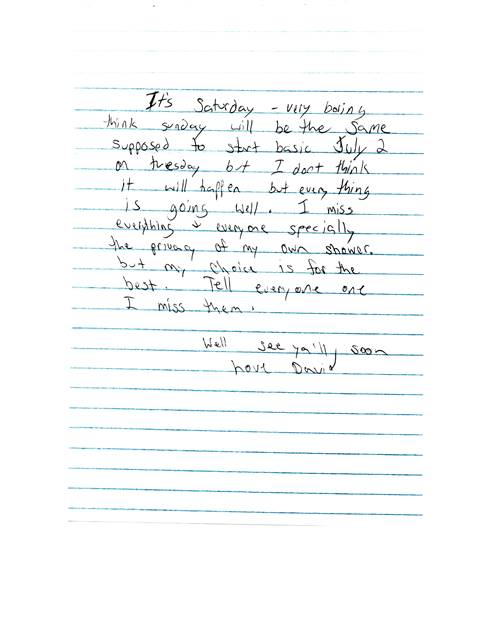 It's Saturday - very boring
think sunday will be the same
supposed to start basic July 2
on tuesday but I dont think
it will happen but every thing
is going well. I miss
everything & everyone specially
the privacy of my own shower.
but my choice is for the
best. Tell everyone one
I miss them.
Well see ya'll soon
Love David